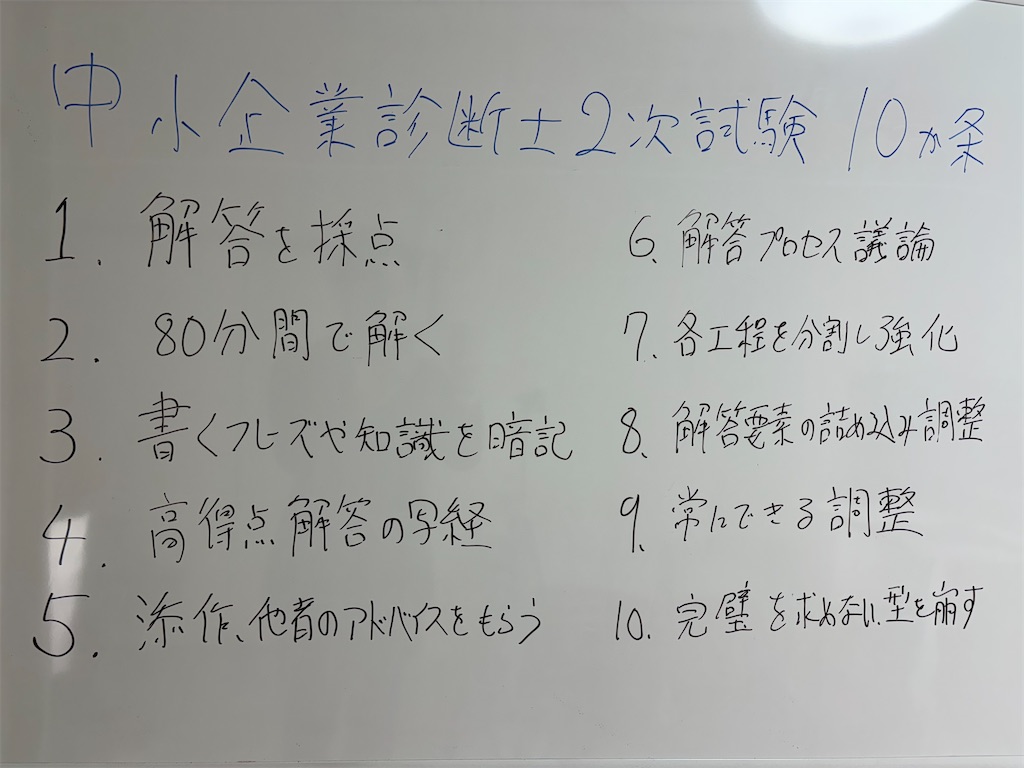 中小企業診断士2次試験 10か条
1. 解答を採点
2. 80分間で解く
3. 書くフレーズや知識を暗記
4. 高得点解答の写経
5. 添作、他者のアドバイスをもらう
6. 解答プロセス議論
7. 各工程を分割し強化
8. 解答要素の詰め込み調整
9. 常にできる調整
10. 完璧を求めない、型を崩す